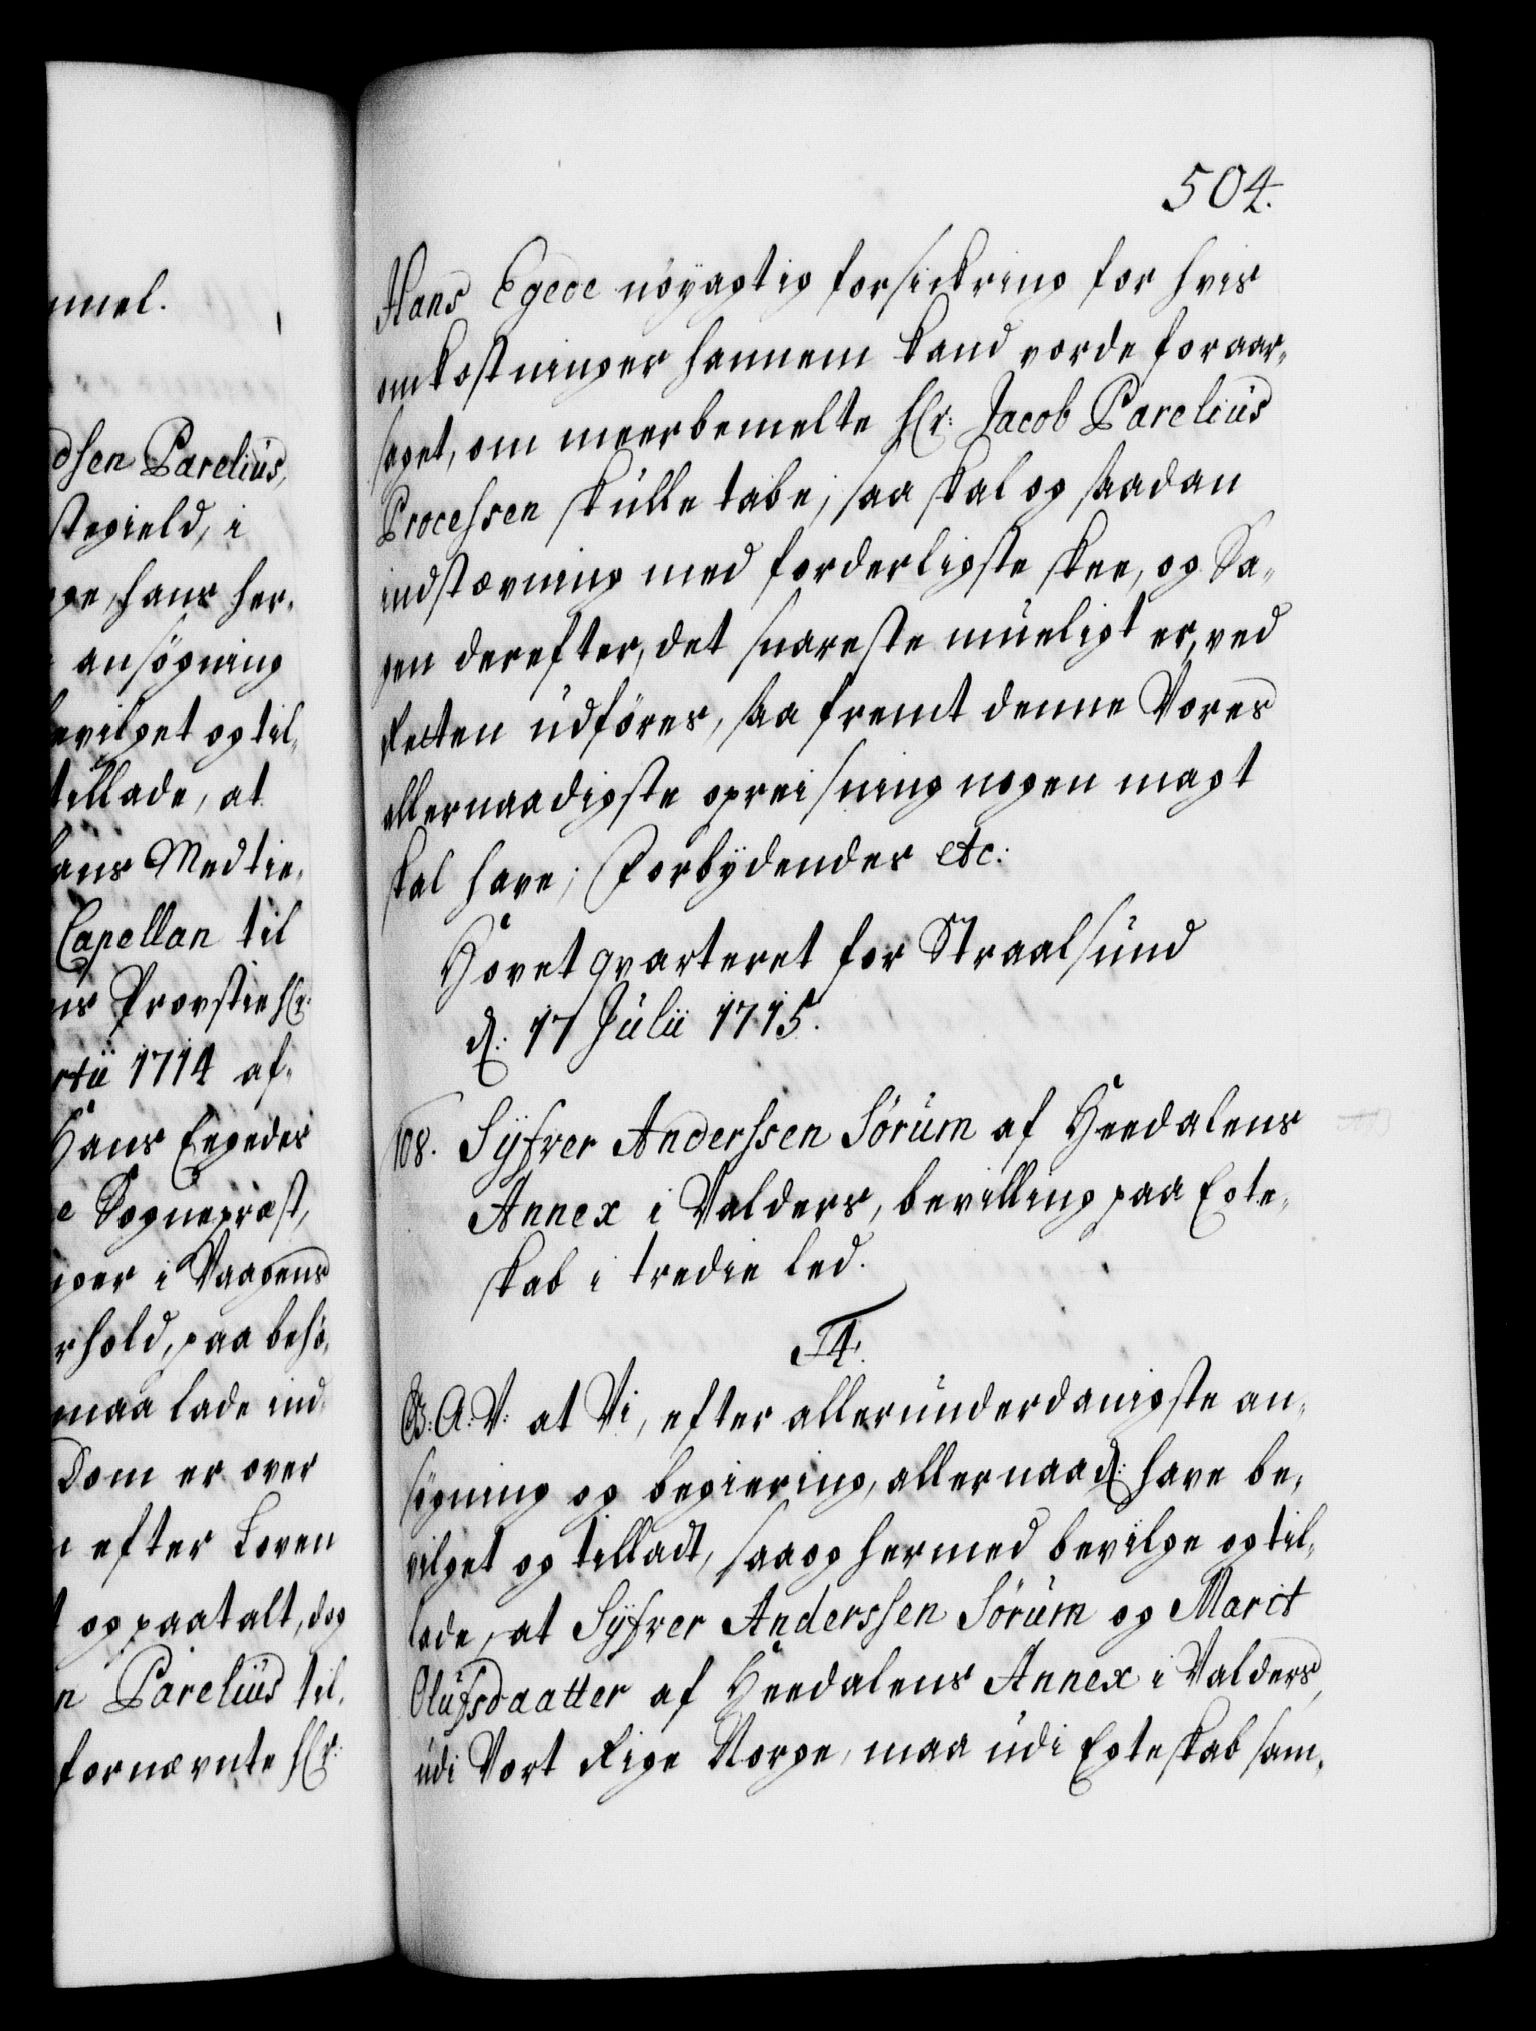 mel.
dsen Parelius,
stegield, i
ge, hans her,
ansøgning
bevilget og til,
tillade, at
hans Medtie,
Capellan til
ns Provstie Hr:
rtii 1714 af,
Hans Egedes
e Sognepræst,
ger i Vaagens
rhold, paa behø,
maa lade ind,
Dom er over
efter Loven
og paatalt, dog
n Parelius til,
fornævnte Hr:
504.
Hans Egede nöyagtig forsickring for hvis
omkostninger hannem kand vorde foraar,
saget, om meerbemelte Hr: Jacob Parelius
Processen skulle tabe; saa skal og saadan
indstævning med forderligste skee, og Sa,
gen derefter, det snareste mueligt er, ved
Retten udföres, saa fremt denne Vores
allernaadigste opreisning nogen magt
skal have; Forbydendes etc:
Hovetqvarteret for Straalsund
d: 17 Julii 1715.
108. Syfver Anderssen Sörum af Heedalens
Annex i Valders, bevilling paa Egte,
skab i tredie led.
F4.
G: A: V: at Vi, efter allerunderdanigste an,
søgning og begiering, allernaad: have be,
vilget og tilladt, saa og hermed bevilge og til,
lade, at Syfver Anderssen Sörum og Marit
Olufsdaatter af Heedalens Annex i Valders,
udi Vort Rige Norge, maa udi Egteskab sam,